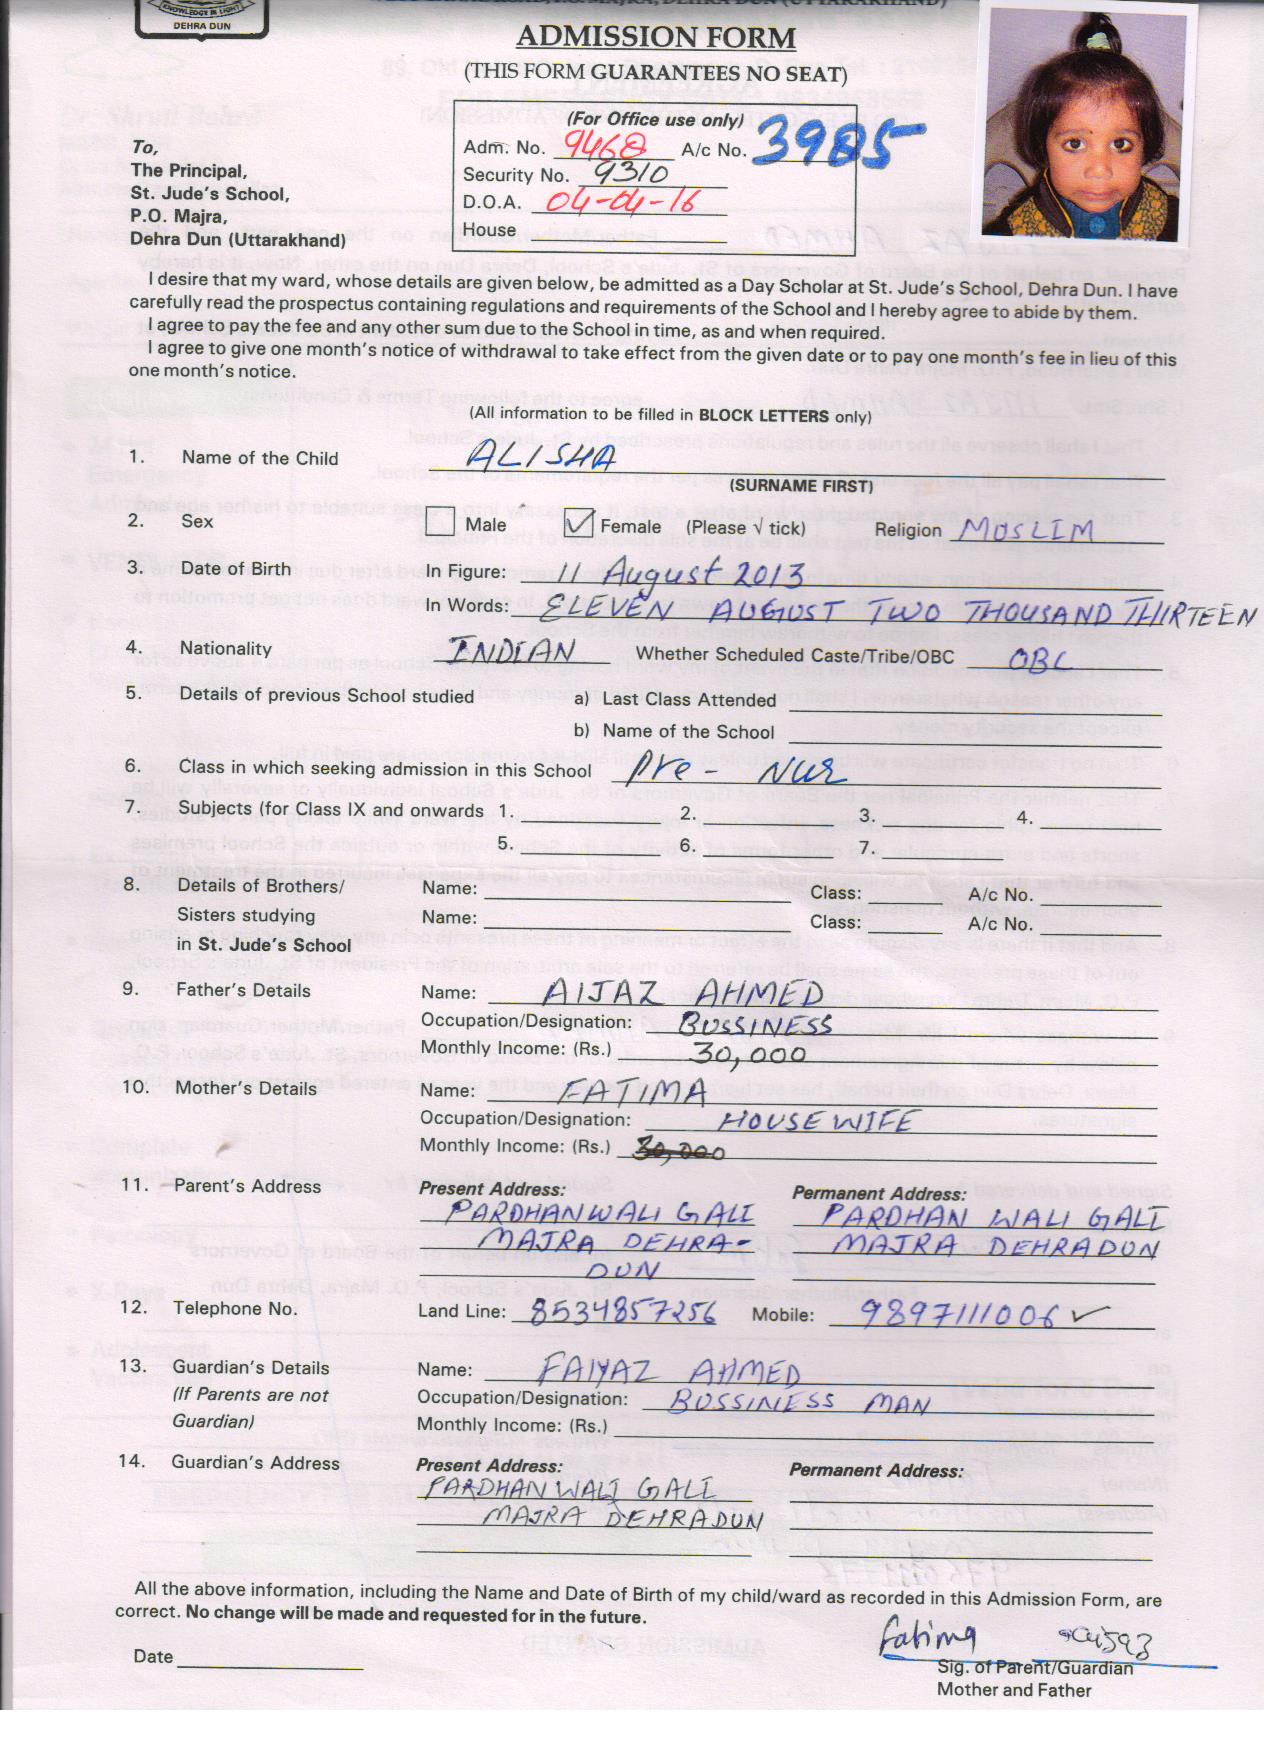 KNOWLEDGE IS LIGHT
DEHRA DUN
ADMISSION FORM
(THIS FORM GUARANTEES NO SEAT)
(For Office use only)
Adm. No. 9468 A/c No. 3985
Security No. 9310
D.O.A. 04-04-16
House
To,
The Principal,
St. Jude's School,
P.O. Majra,
Dehra Dun (Uttarakhand)
I desire that my ward, whose details are given below, be admitted as a Day Scholar at St. Jude's School, Dehra Dun. I have
carefully read the prospectus containing regulations and requirements of the School and I hereby agree to abide by them.
I agree to pay the fee and any other sum due to the School in time, as and when required.
I agree to give one month's notice of withdrawal to take effect from the given date or to pay one month's fee in lieu of this
one month's notice.
(All information to be filled in BLOCK LETTERS only)
1. Name of the Child ALISHA
(SURNAME FIRST)
2. Sex Male Female (Please √ tick) Religion MUSLIM
3. Date of Birth In Figure: 11 August 2013
In Words: ELEVEN AUGUST TWO THOUSAND THIRTEEN
4. Nationality INDIAN Whether Scheduled Caste/Tribe/OBC OBC
5. Details of previous School studied a) Last Class Attended
b) Name of the School
6. Class in which seeking admission in this School Pre - Nur
7. Subjects (for Class IX and onwards 1. 2. 3. 4.
5. 6. 7.
8. Details of Brothers/ Name: Class: A/c No.
Sisters studying Name: Class: A/c No.
in St. Jude's School
9. Father's Details Name: AIJAZ AHMED
Occupation/Designation: BUSSINESS
Monthly Income: (Rs.) 30,000
10. Mother's Details Name: FATIMA
Occupation/Designation: HOUSE WIFE
Monthly Income: (Rs.) 30,000
11. Parent's Address Present Address: Permanent Address:
PARDHANWALI GALI PARDHAN WALI GALI
MAJRA DEHRA- MAJRA DEHRADUN
DUN
12. Telephone No. Land Line: 8534857256 Mobile: 9897111006 ✓
13. Guardian's Details Name: FAIYAZ AHMED
(If Parents are not Occupation/Designation: BUSSINESS MAN
Guardian) Monthly Income: (Rs.)
14. Guardian's Address Present Address: Permanent Address:
PARDHAN WALI GALI
MAJRA DEHRADUN
All the above information, including the Name and Date of Birth of my child/ward as recorded in this Admission Form, are
correct. No change will be made and requested for in the future.
Fatima
Date Sig. of Parent/Guardian
Mother and Father